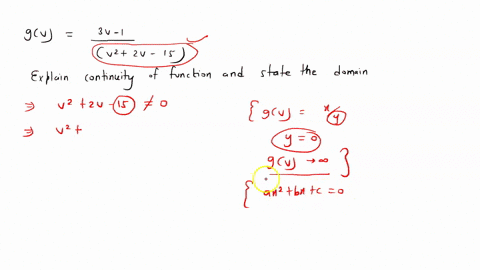 g(v) = 3v-1 / (v² + 2v - 15)
Explain continuity of function and state the domain
⇒ v² + 2v - 15 ≠ 0
⇒ v² +
{ g(v) = x/y
y = 0
g(v) → ∞ }
{ ax² + bx + c = 0